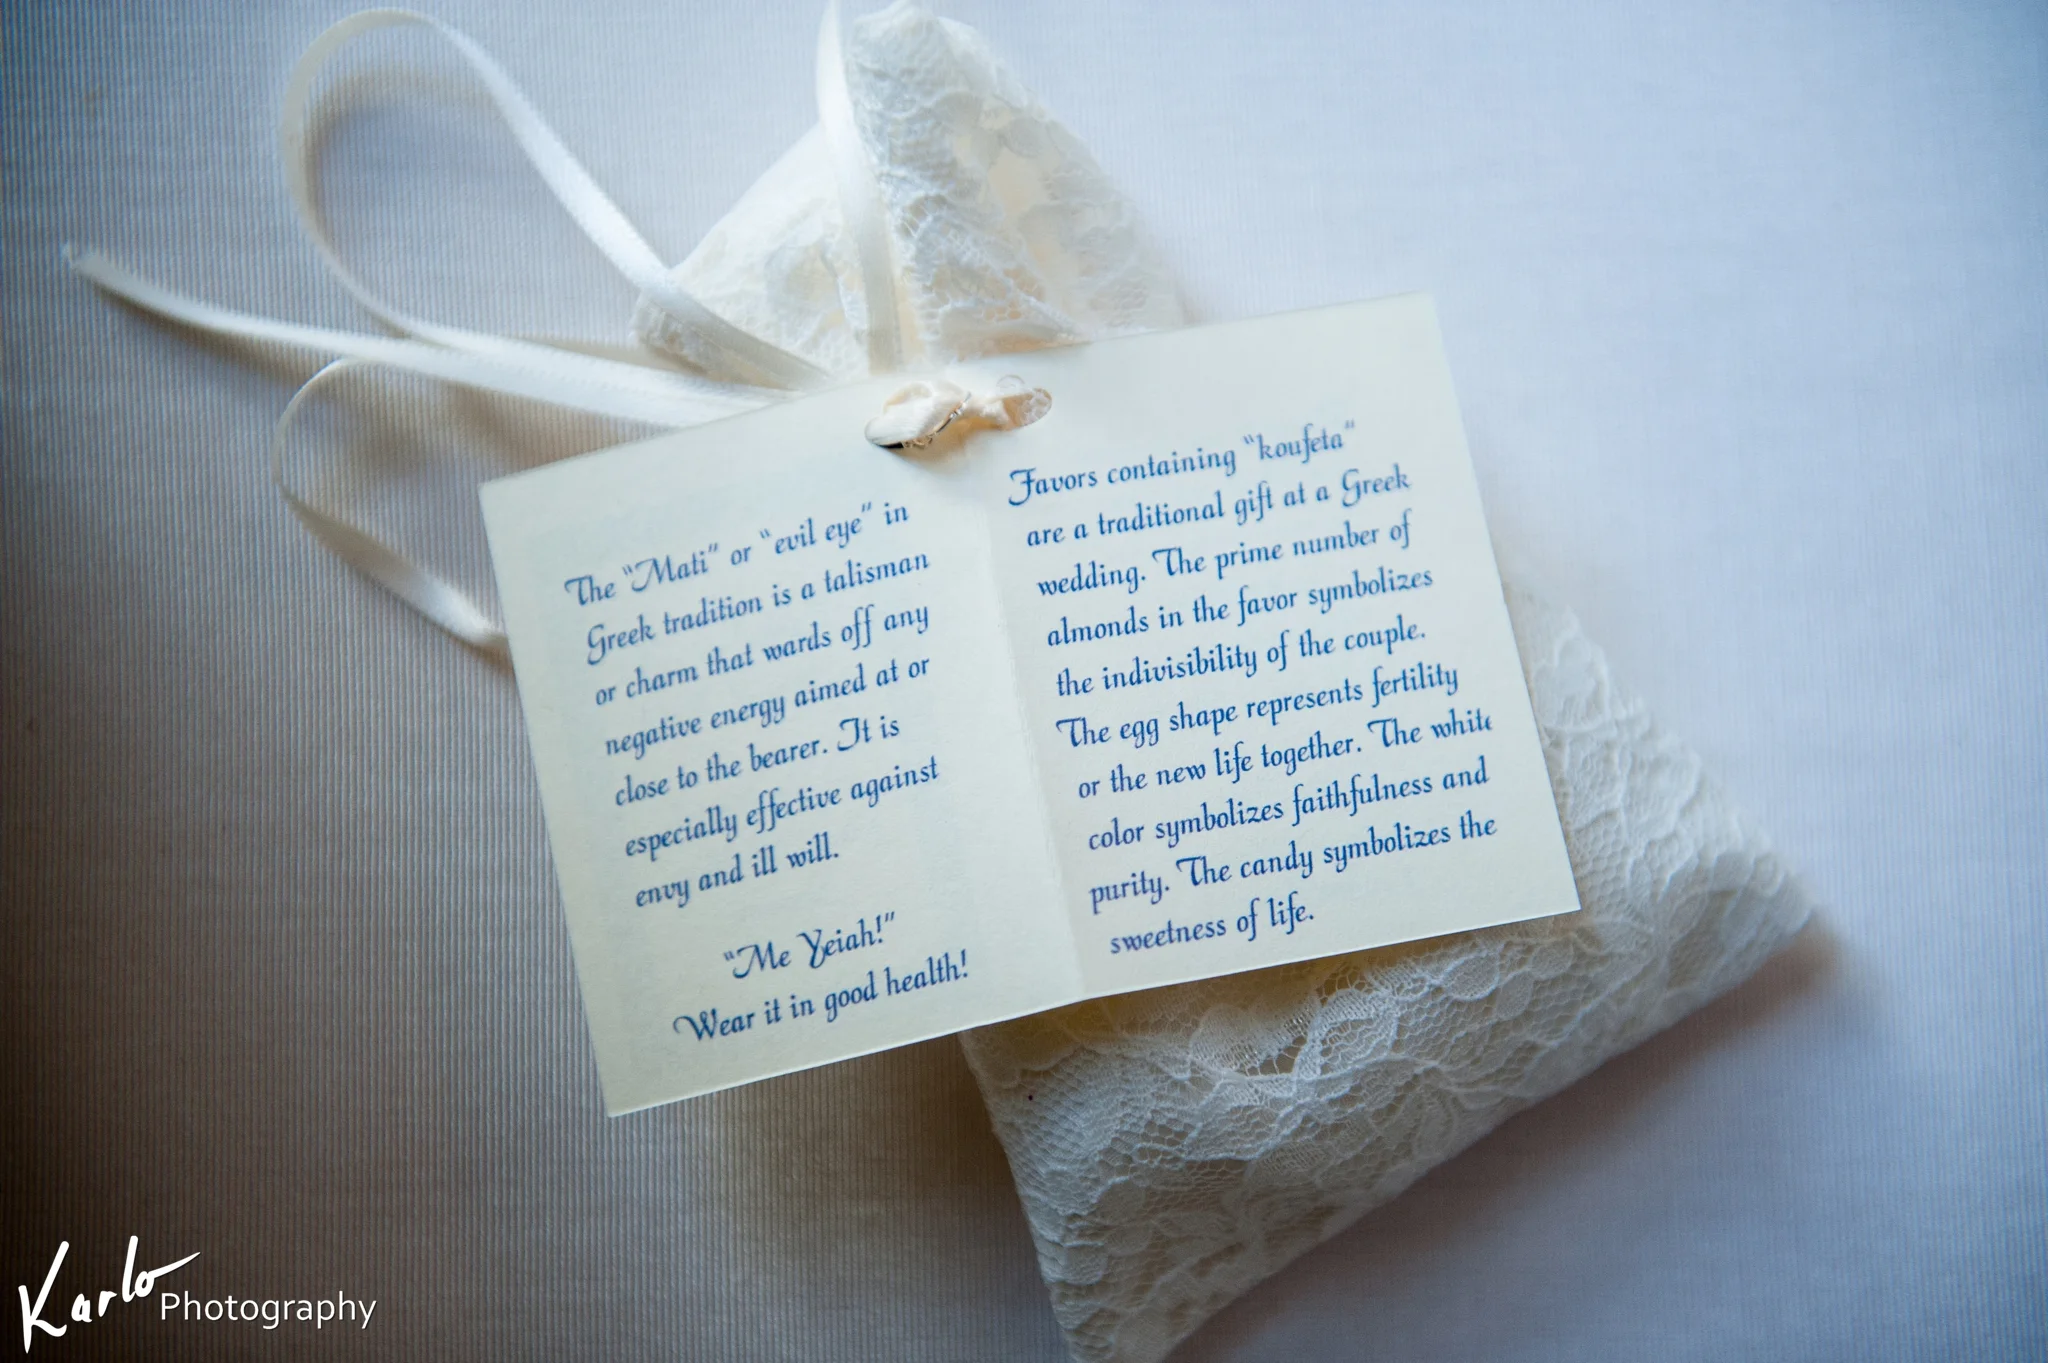 The “Mati” or “evil eye” in
Greek tradition is a talisman
or charm that wards off any
negative energy aimed at or
close to the bearer. It is
especially effective against
envy and ill will.
“Me Yeiah!”
Wear it in good health!
Favors containing “koufeta”
are a traditional gift at a Greek
wedding. The prime number of
almonds in the favor symbolizes
the indivisibility of the couple.
The egg shape represents fertility
or the new life together. The white
color symbolizes faithfulness and
purity. The candy symbolizes the
sweetness of life.
Karlo Photography